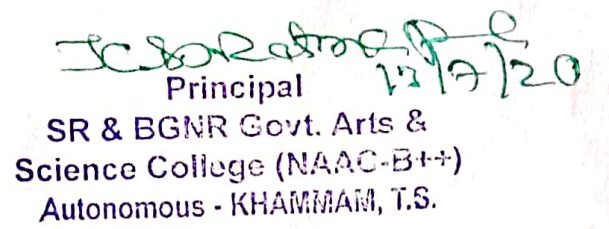 13/7/20
Principal
SR & BGNR Govt. Arts &
Science College (NAAC-B++)
Autonomous - KHAMMAM, T.S.